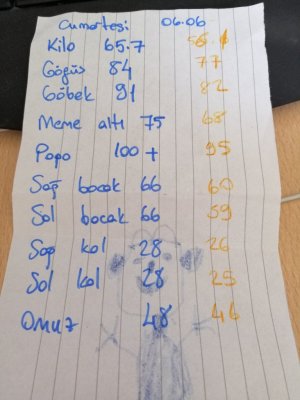 Cumartesi 06.06
Kilo 65.7
Göğüs 84 77
Göbek 91 82
Meme altı 75 68
Popo 100+ 95
Sağ bacak 66 60
Sol bacak 66 59
Sağ kol 28 26
Sol kol 28 25
Omuz 48